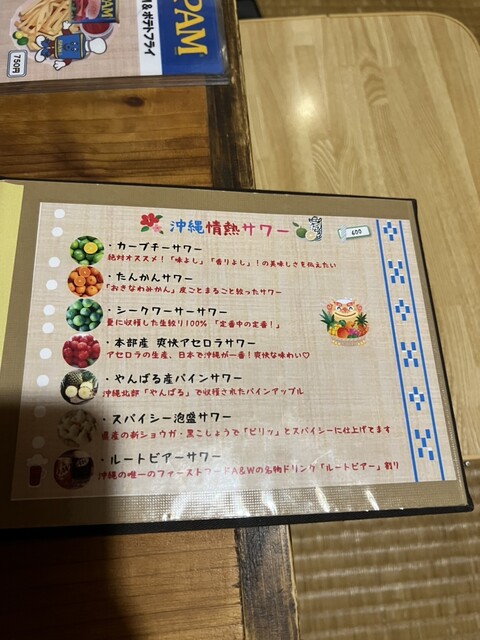 SPAM
&ポテトフライ
750円
沖縄情熱サワー
600
・カーブチーサワー
絶対オススメ！「味よし」「香りよし」！の美味しさを伝えたい
・たんかんサワー
「おきなわみかん」皮ごとまるごと絞ったサワー
・シークワーサーサワー
夏に収穫した生絞り100% 「定番中の定番！」
・本部産 爽快アセロラサワー
アセロラの生産、日本で沖縄が一番！爽快な味わい♡
・やんばる産パインサワー
沖縄北部「やんばる」で収穫されたパインアップル
・スパイシー泡盛サワー
県産の新ショウガ・黒こしょうで「ピリッ」とスパイシーに仕上げてます
・ルートビアーサワー
沖縄の唯一のファーストフードA&Wの名物ドリンク「ルートビアー」割り